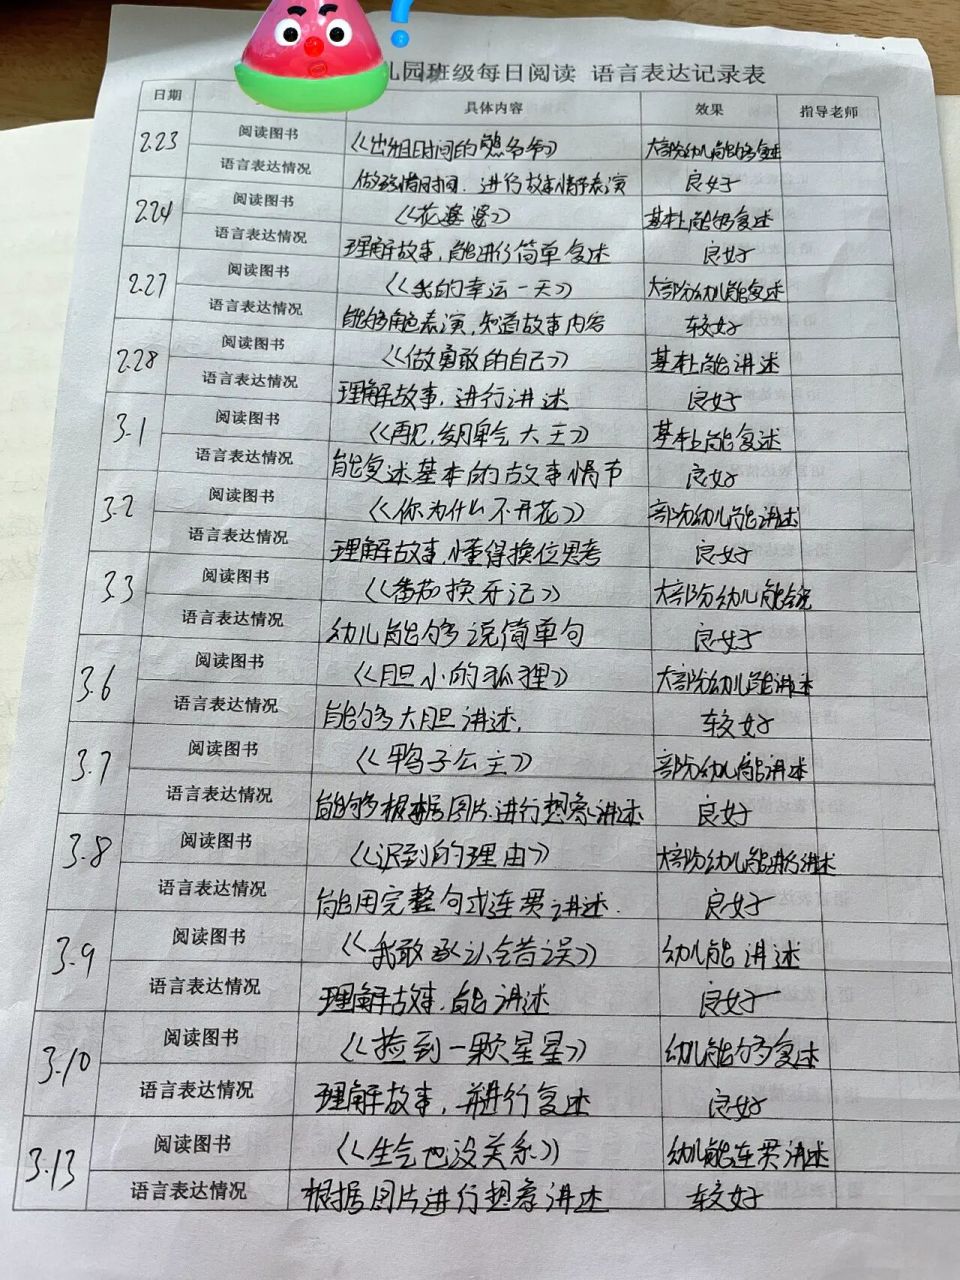 儿园班级每日阅读 语言表达记录表
日期 具体内容 效果 指导老师
2.23 阅读图书 《出租时间的熊爷爷》 大部分幼儿能够复述
语言表达情况 做到珍惜时间.进行故事情节表演 良好
2.24 阅读图书 《花婆婆》 基本上能够复述
语言表达情况 理解故事,能进行简单复述 良好
2.27 阅读图书 《我的幸运一天》 大部分幼儿能复述
语言表达情况 能够角色表演,知道故事内容 较好
2.28 阅读图书 《做勇敢的自己》 基本上能讲述
语言表达情况 理解故事,进行讲述 良好
3.1 阅读图书 《再见,发脾气大王》 基本上能复述
语言表达情况 能复述基本的故事情节 良好
3.2 阅读图书 《你为什么不开花》 部分幼儿能讲述
语言表达情况 理解故事,懂得换位思考 良好
3.3 阅读图书 《番茄换牙记》 大部分幼儿能说
语言表达情况 幼儿能够说简单句 良好
3.6 阅读图书 《胆小的狐狸》 大部分幼儿能讲述
语言表达情况 能够大胆讲述. 较好
3.7 阅读图书 《鸭子公主》 部分幼儿能讲述
语言表达情况 能够根据图片进行想象讲述 良好
3.8 阅读图书 《迟到的理由》 大部分幼儿能进行讲述
语言表达情况 能用完整句式连贯讲述. 良好
3.9 阅读图书 《我敢承认错误》 幼儿能讲述
语言表达情况 理解故事,能讲述 良好
3.10 阅读图书 《捡到一颗星星》 幼儿能够复述
语言表达情况 理解故事,并进行复述 良好
3.13 阅读图书 《生气也没关系》 幼儿能连贯讲述
语言表达情况 根据图片进行想象讲述 较好